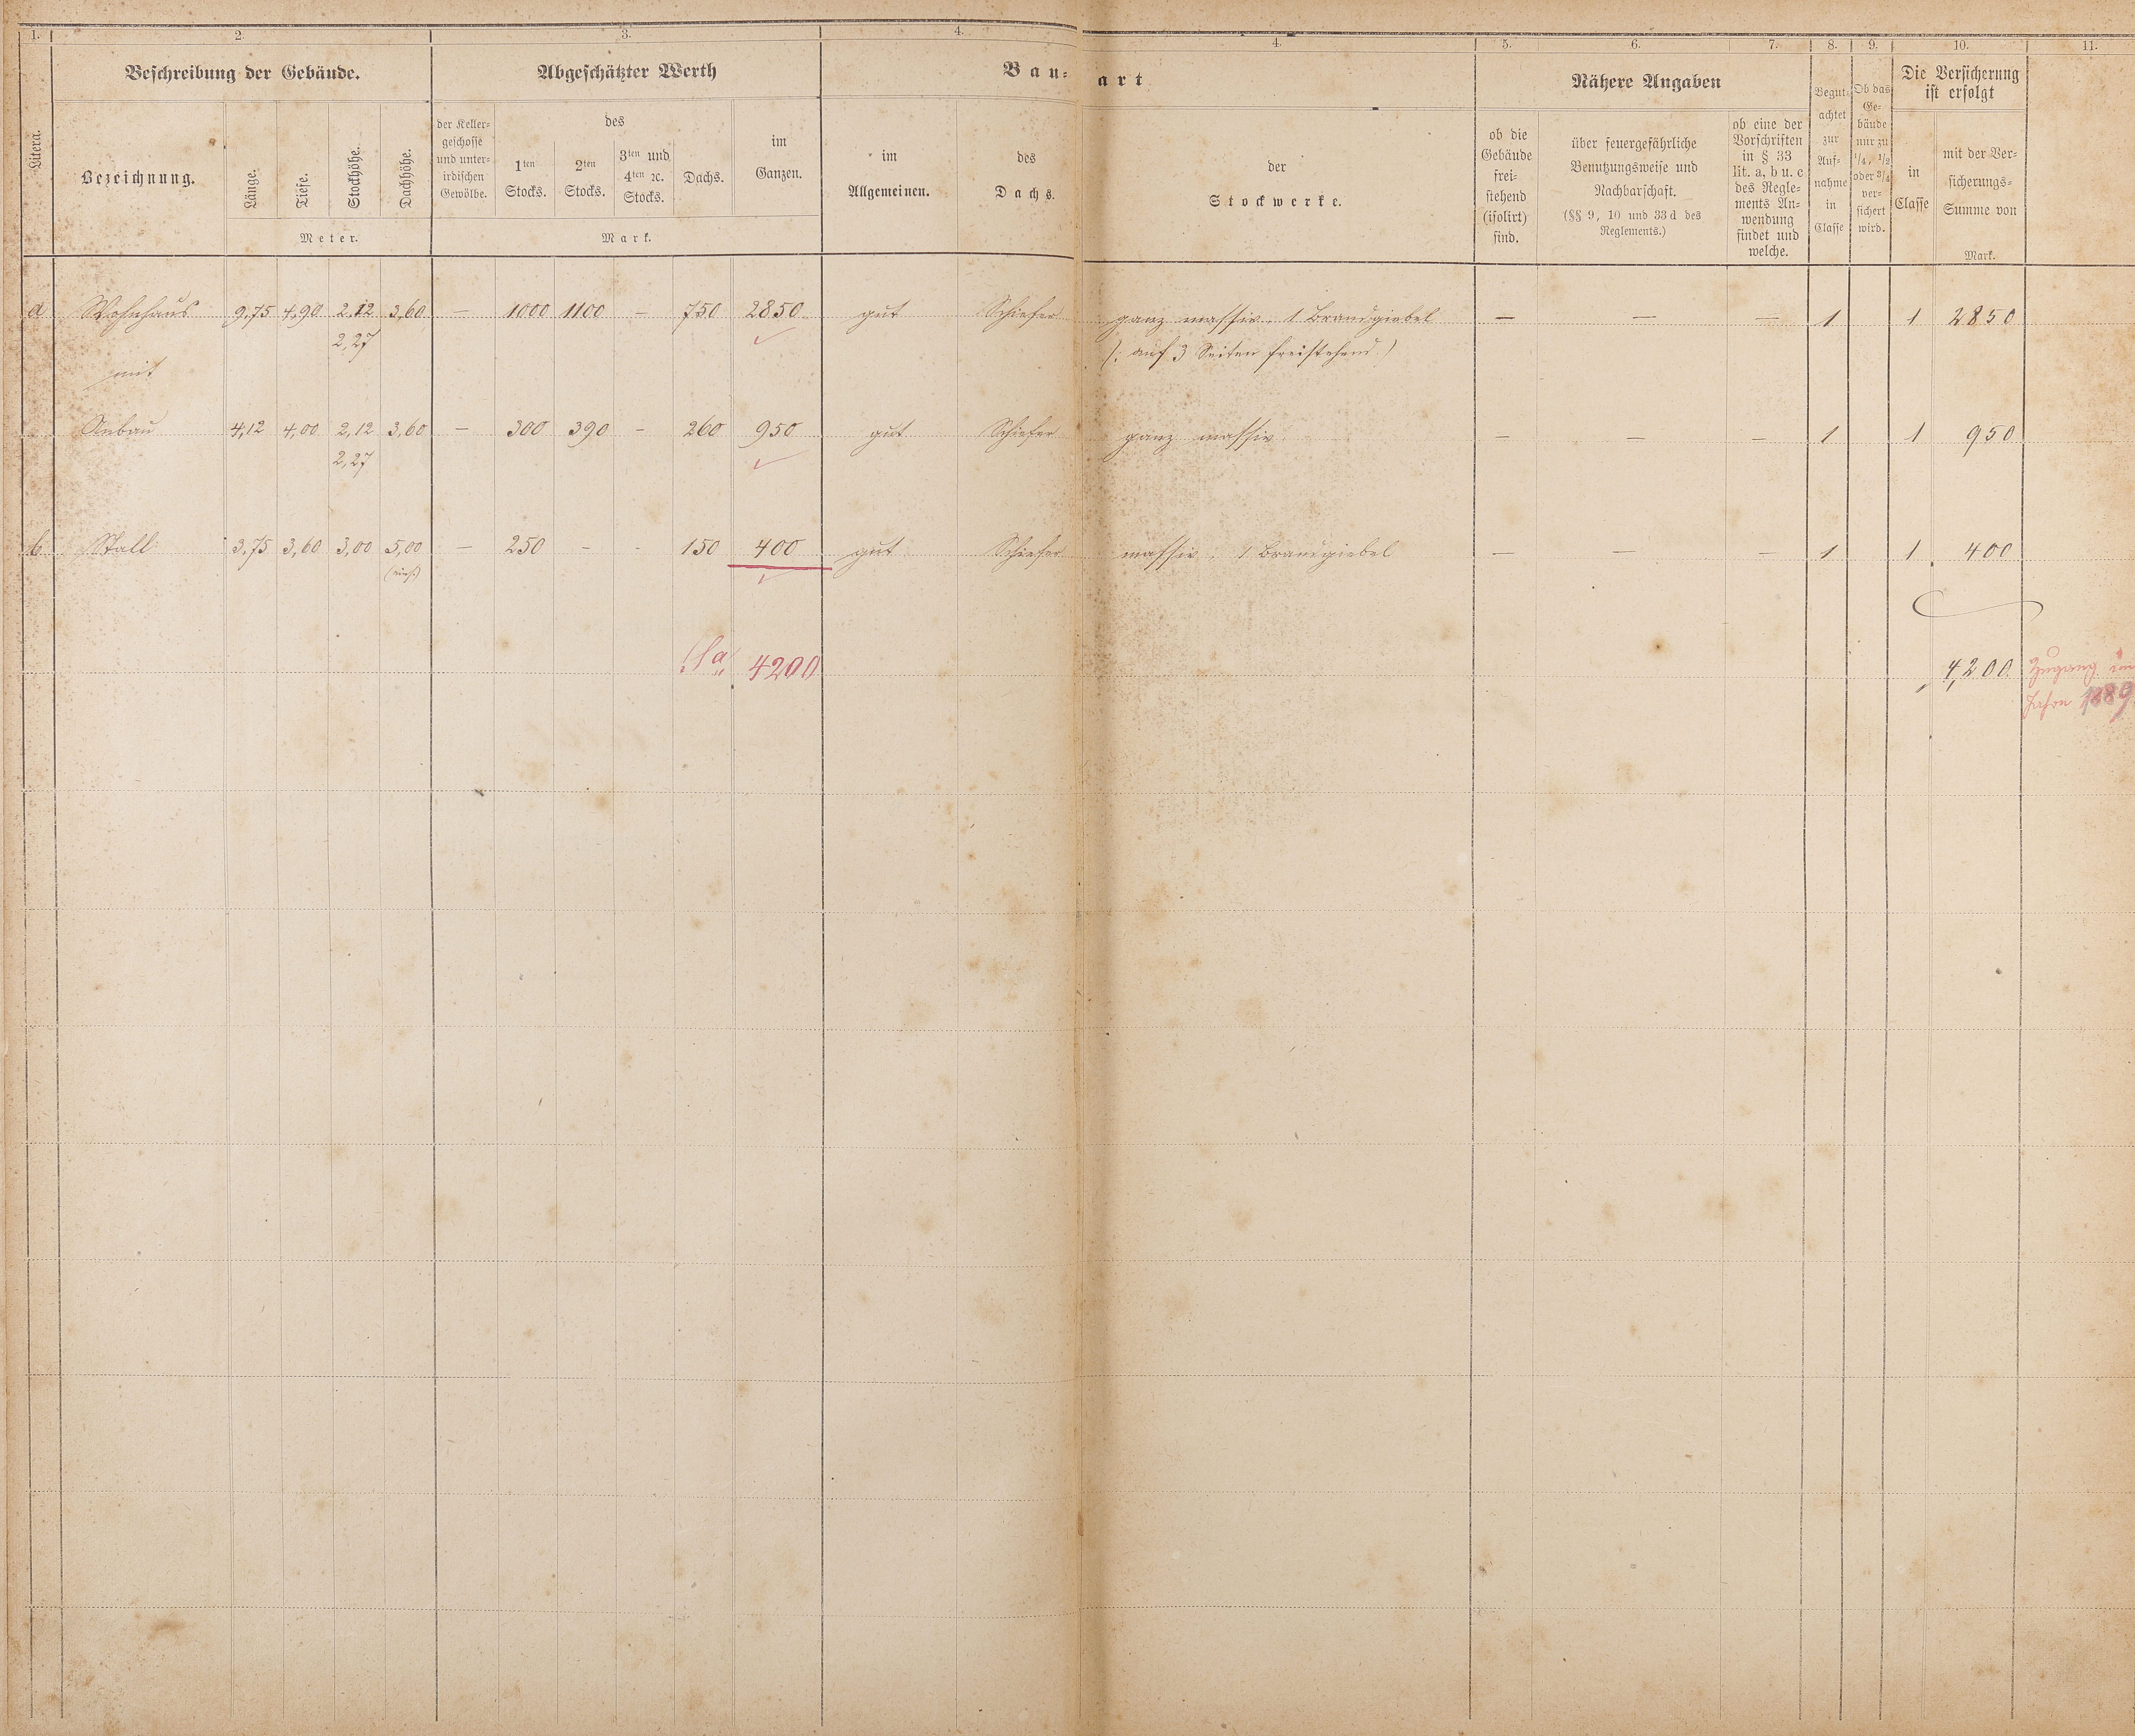 1. 2. 3. 4. 4. 5. 6. 7. 8. 9. 10. 11.
Litera.
Beschreibung der Gebäude.
Bezeichnung.
Länge.
Tiefe.
Stockhöhe.
Dachhöhe.
Meter.
Abgeschätzter Werth
der Keller-
geschosse
und unter-
irdischen
Gewölbe.
des
1ten
Stocks.
2ten
Stocks.
3ten und
4ten ꝛc.
Stocks.
Dachs.
im
Ganzen.
Mark.
Bau-
art
im
Allgemeinen.
des
Dachs.
der
Stockwerke.
Nähere Angaben
ob die
Gebäude
frei-
stehend
(isolirt)
sind.
über feuergefährliche
Benutzungsweise und
Nachbarschaft.
(§§ 9, 10 und 33 d des
Reglements.)
ob eine der
Vorschriften
in § 33
lit. a, b u. c
des Regle-
ments An-
wendung
findet und
welche.
Begut-
achtet
zur
Auf-
nahme
in
Classe
Ob das
Ge-
bäude
nur zu
1/4, 1/2
oder 3/4
ver-
sichert
wird.
Die Versicherung
ist erfolgt
in
Classe
mit der Ver-
sicherungs-
Summe von
Mark.
a Wohnhaus 9,75 4,90 2,12 3,60 — 1000 1100 — 750 2850 gut Schiefer ganz massiv. 1 Brandgiebel — — — 1 1 2850
2,27 (: auf 3 Seiten freistehend.)
mit
Anbau 4,12 4,00 2,12 3,60 — 300 390 — 260 950 gut Schiefer ganz massiv — — — 1 1 950
2,27
b Stall 3,75 3,60 3,00 5,00 — 250 - - 150 400 gut Schiefer massiv; 1 Brandgiebel — — — 1 1 400
Sa 4200 4,200 Zugang im
Jahre 1889